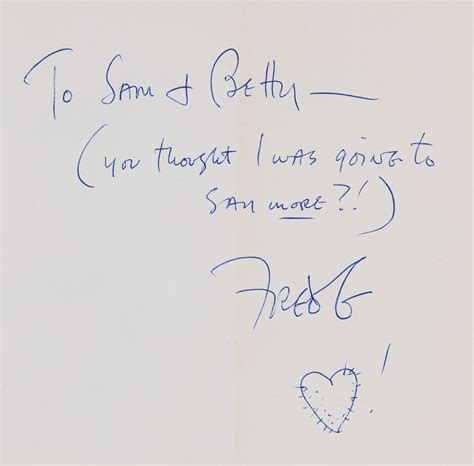 To Sam & Betty —
(you thought I was going to
say more?!)
Fred G
!